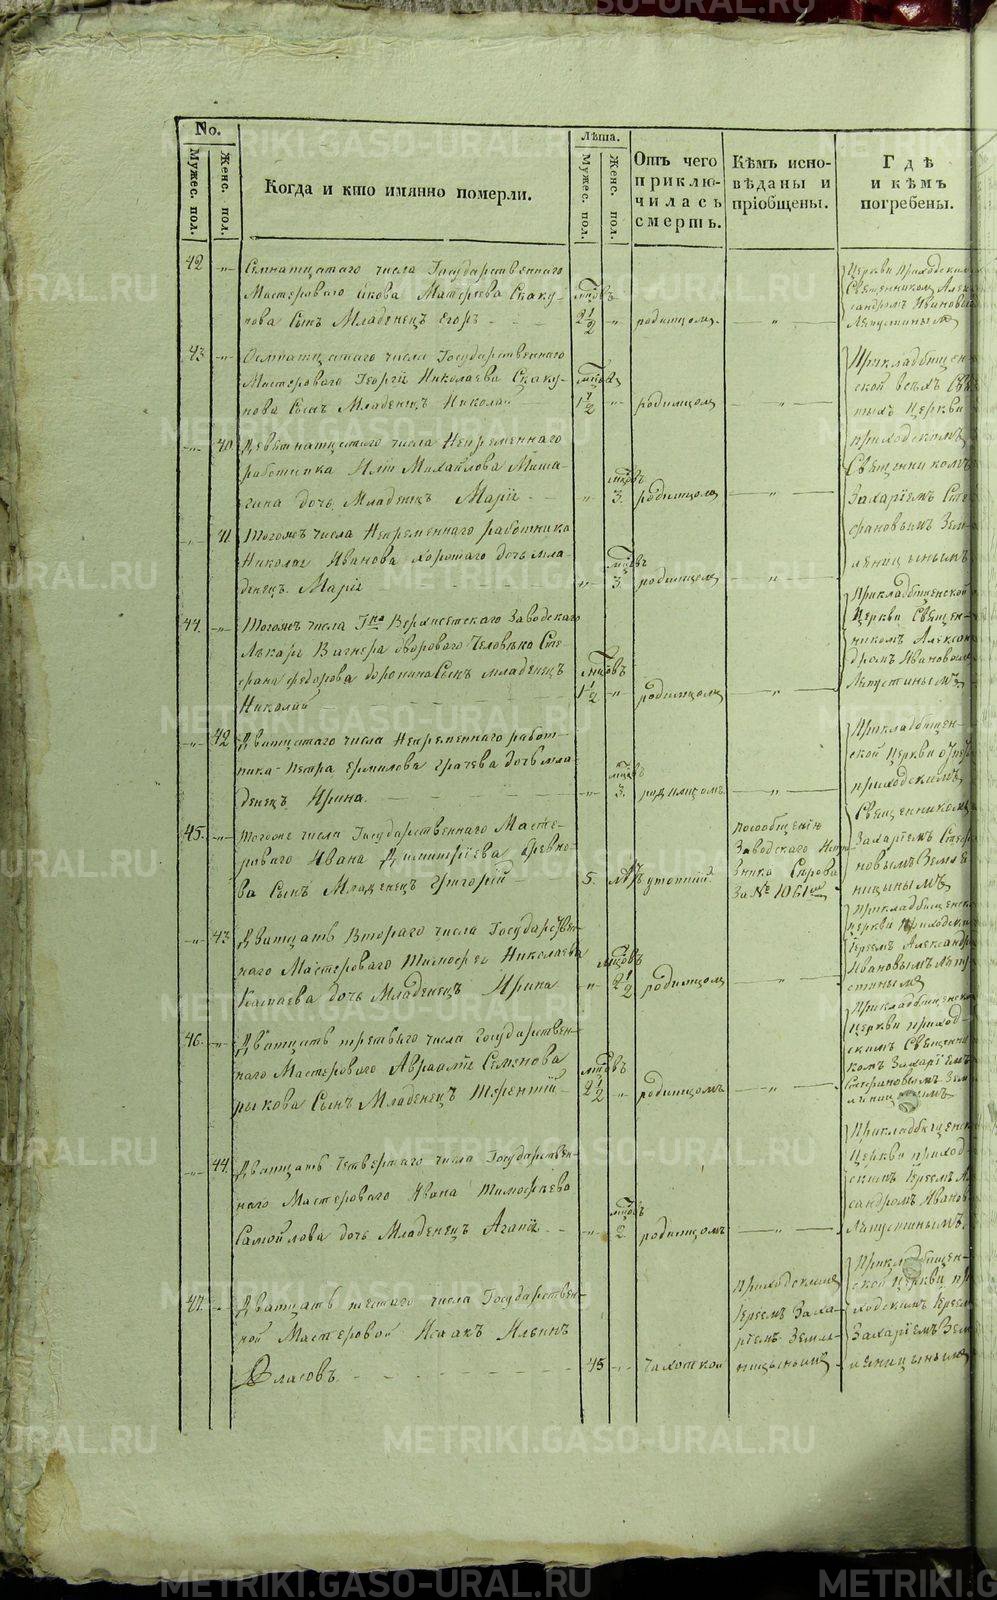 No.
Мужес. пол.
Женс. пол.
Когда и кто имянно померли.
Лѣта.
Мужес. пол.
Женс. пол.
Отъ чего
приклю-
чилась
смерть.
Кѣмъ испо-
вѣданы и
пріобщены.
Гдѣ
и кѣмъ
погребены.
42 Семнатцатаго числа Государственнаго
Мастероваго Якова Матвѣева Скаку-
нова Сынъ Младенецъ Егоръ
2 1/2 родимцомъ
Церкви приходскимъ
Священникомъ Алек-
сандромъ Ивановымъ
Лепустинымъ
43 Осмнатцатаго числа Государственнаго
Мастероваго Георгія Николаева Скаку-
нова Сынъ Младенецъ Николай
1 1/2 родимцомъ
Прикладбищен-
ской всѣхъ Свя-
тыхъ Церкви
приходскимъ
Священникомъ
Захаріемъ Сте-
фановымъ Зем-
ляницынымъ
40 Девятнатцатаго числа Непременнаго
работника Иліи Михайлова Миша-
гина дочь Младенецъ Марія
3. родимцомъ
41 Тогожъ числа Непременнаго работника
Николая Иванова дочь мла-
денецъ Марія
3. родимцомъ
44. Тогожъ числа Верхисетскаго Заводскаго
Лѣкаря Вагнера двороваго Человѣка Сте-
фана Федорова Сынъ младенецъ
Николай
1 1/2 родимцомъ
Прикладбищенской
Церкви Священ-
никомъ Алексан-
дромъ Ивановымъ
Лепустинымъ
42 Дватцатаго числа Непременнаго работ-
ника Петра Ермилова Грачева дочь мла-
денецъ Ирина.
3. родимцомъ
Прикладбищен-
ской Церкви
приходскимъ
Священникомъ
Захаріемъ Стефа-
новымъ Земля-
ницынымъ
45. Тогоже числа Государственнаго Масте-
роваго Ивана Димитріева
Сынъ Младенецъ Григорій
5. утопшій
По сообщенію
Заводскаго Испра-
вника Сирова
За № 1061
43 Дватцать Втораго числа Государствен-
наго Мастероваго Тимофея Николаева
дочь Младенецъ Ирина
2 1/2 родимцомъ
Прикладбищенской
Церкви Приходскимъ
Іереемъ Александромъ
Ивановымъ Лепу-
стинымъ
46. Дватцать третьяго числа Государствен-
наго Мастероваго Авраамія Семенова
Рыкова Сынъ Младенецъ Терентій
2 1/2 родимцомъ
Прикладбищенской
Церкви приход-
скимъ Священни-
комъ Захаріемъ
Стефановымъ Зем-
ляницынымъ
44. Дватцать четвертаго числа Государствен-
наго Мастероваго Ивана Тимофѣева
Самойлова дочь Младенецъ Агапія
2. родимцомъ
Прикладбищенской
Церкви приход-
скимъ Іереемъ Алек-
сандромъ Иванов
Лепустинымъ.
47. Дватцать шестаго числа Государствен-
ной Мастеровой Исаакъ Ильинъ
Власовъ.
45 чахоткой
Приходскимъ
Іереемъ Заха-
ріемъ Земля-
ницынымъ
Прикладбищен-
ской Церкви При-
ходскимъ Іереемъ
Захаріемъ Зем-
ляницынымъ
METRIKI.GASO-URAL.RU